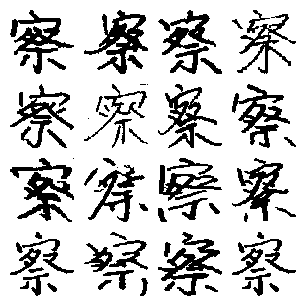 察察察察
察察察察
察察察察
察察察察